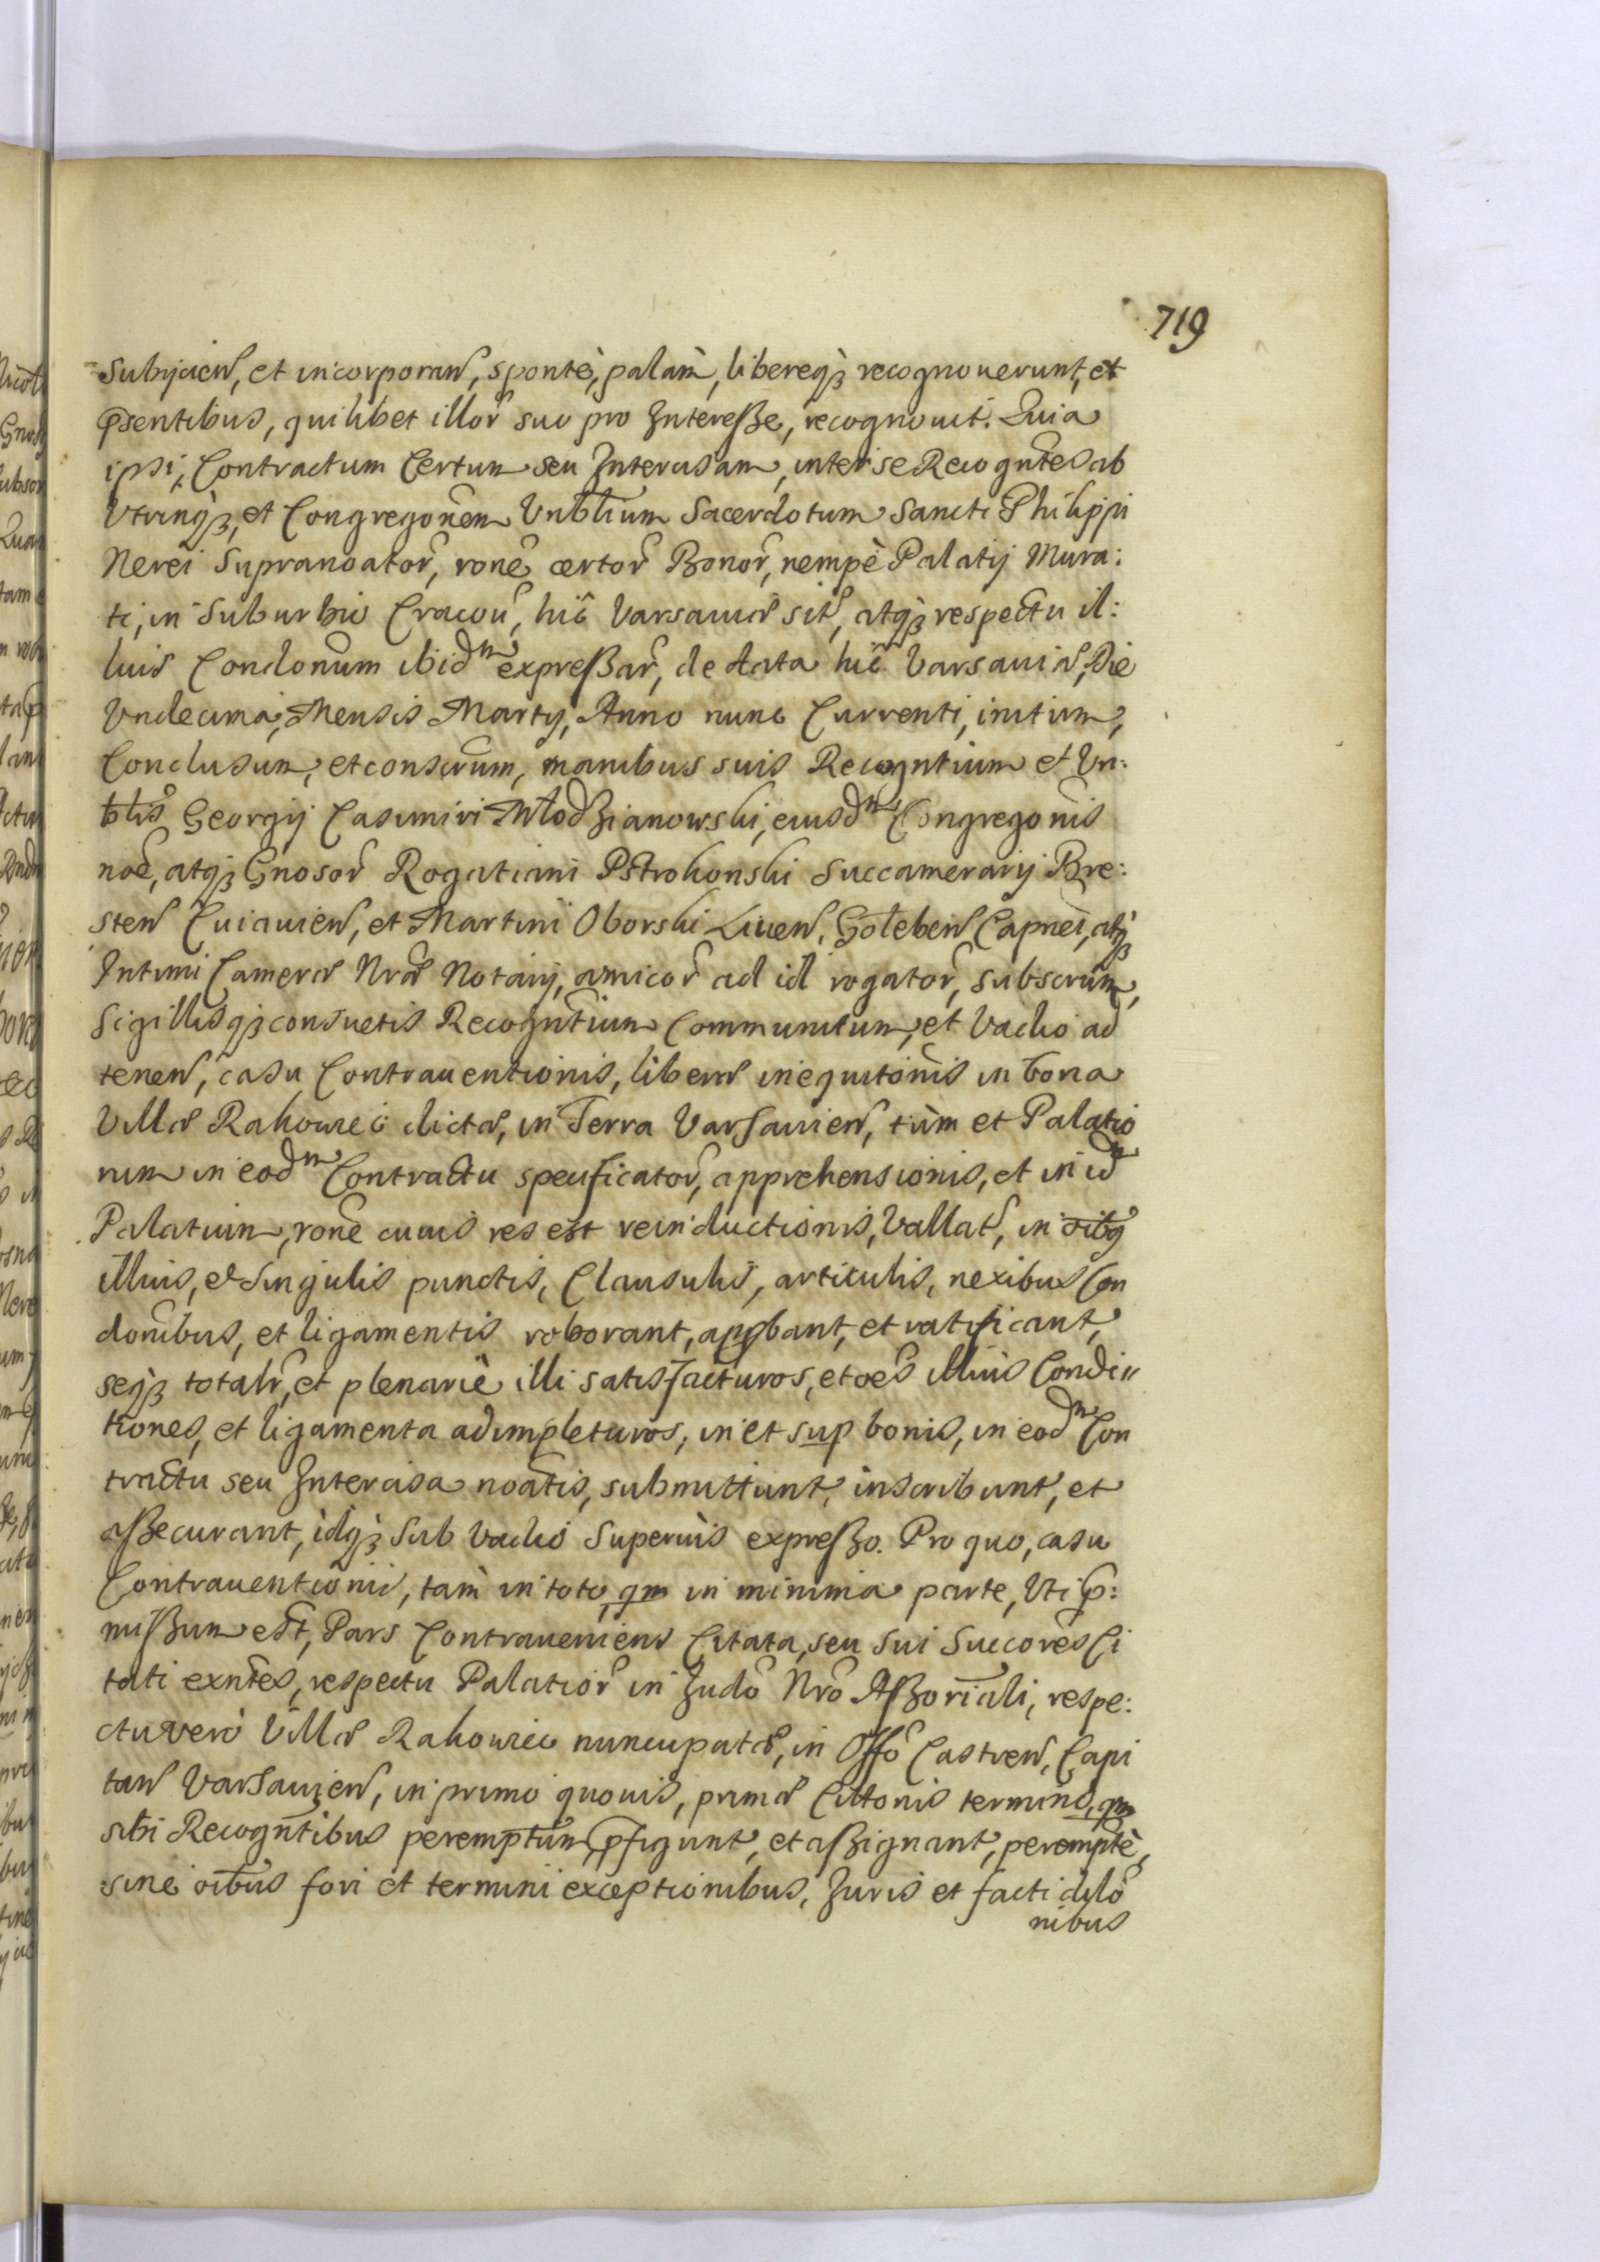 719
Subijcien, et incorporan, spontè, palàm, libereqꝫ recognouerunt, et
psentibus, quilibet illor suo pro Interesse, recognouit. Quia
ipsi, Contractum Certum seu Intercisam, inter se Recogntes ab
Vtrinqꝫ, et Congregonem Vnblium Sacerdotum Sancti Philippi
Nerei Supranoator, rone certor Bonor, nempè Palatij Mura:
ti, in Suburbio Cracou, hic Varsauiæ sit, atqꝫ respectu il:
lius Condonum ibidm expressar, de data hic Varsauiæ, Die
Vndecima, Mensis Martij, Anno nunc Currenti, initum,
Conclusum, et conscrum, manibus suis Recogntium et Vn:
blis Georgij Casimiri Młodzianowski, eiusdm Congregonis
noe, atqꝫ Gnosor Rogatiani Pstrokonski Succamerarij Bre:
sten Cuiauien, et Martini Oborski Liuen, Goleben Capnei, atqꝫ
Intimi Cameræ Nræ Notarij, amicor ad id rogator, subscrum,
Sigillisqꝫ consuetis Recogntium Communitum, et Vadio ad
tenen, casu Contrauentionis, liberæ inequitonis in bona
Villæ Rakowiec dictæ, in Terra Varsauien, tùm et Palatio
rum in eodm Contractu specificator, apprehensionis, et in idm
Palatium, rone cuius res est reinductionis, Vallat, in oibq
illius, et Singulis punctis, Clausulis, articulis, nexibus Con
donibus, et ligamentis roborant, appbant, et ratificant,
seqꝫ totalr, et plenariè illi satisfacturos, et oes illius Condi
tiones, et ligamenta adimpleturos, in et sup bonis, in eodm Con
tractu seu Intercisa noatis, submittunt, inscribunt, et
assecurant, idqꝫ Sub Vadio Superiùs expresso. Pro quo, casu
Contrauentionis, tam in toto, qm in minima parte, Vti p:
missum est, Pars Contraueniens Citata, seu Sui Succores Ci
tati exntes, respectu Palatior in Judo Nro Assoriali, respe:
ctu verò Villæ Rakowiec nuncupatæ, in Offo Castren, Capi
tan Varsauien, in primo quouis, primæ Cittonis termino, qm
sibi Recogntibus peremptum pfigunt, et assignant, peremptè,
sine oibus fori et termini exceptionibus, Juris et facti dilo
nibus